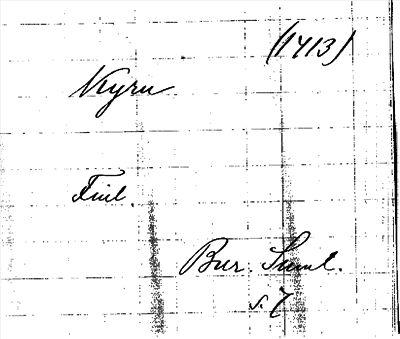 (1413)
Kyru
Finl.
Bur. Saml.
s. 7